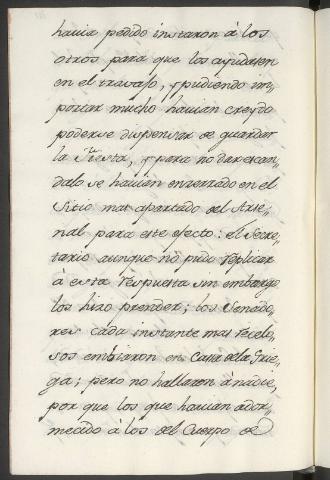 havia pedido instaron à los
otros para que los ayudasen
en el travajo, y pudiendo im,
portar mucho havian creydo
poderse dispensar de guardar
la Fiesta, y para no dar escan,
dalo se havian enserrado en el
Sitio mas apartado del Arse,
nal para este efecto: el Secre,
tario aunque no pudo replicar
à esta respuesta sin embargo
los hizo prender; los Senado,
res cada instante mas recelo,
sos embiaron en Casa de la Grie,
ga; pero no hallaron à nadie,
por que los que havian ador,
mecido à los del Cuerpo de